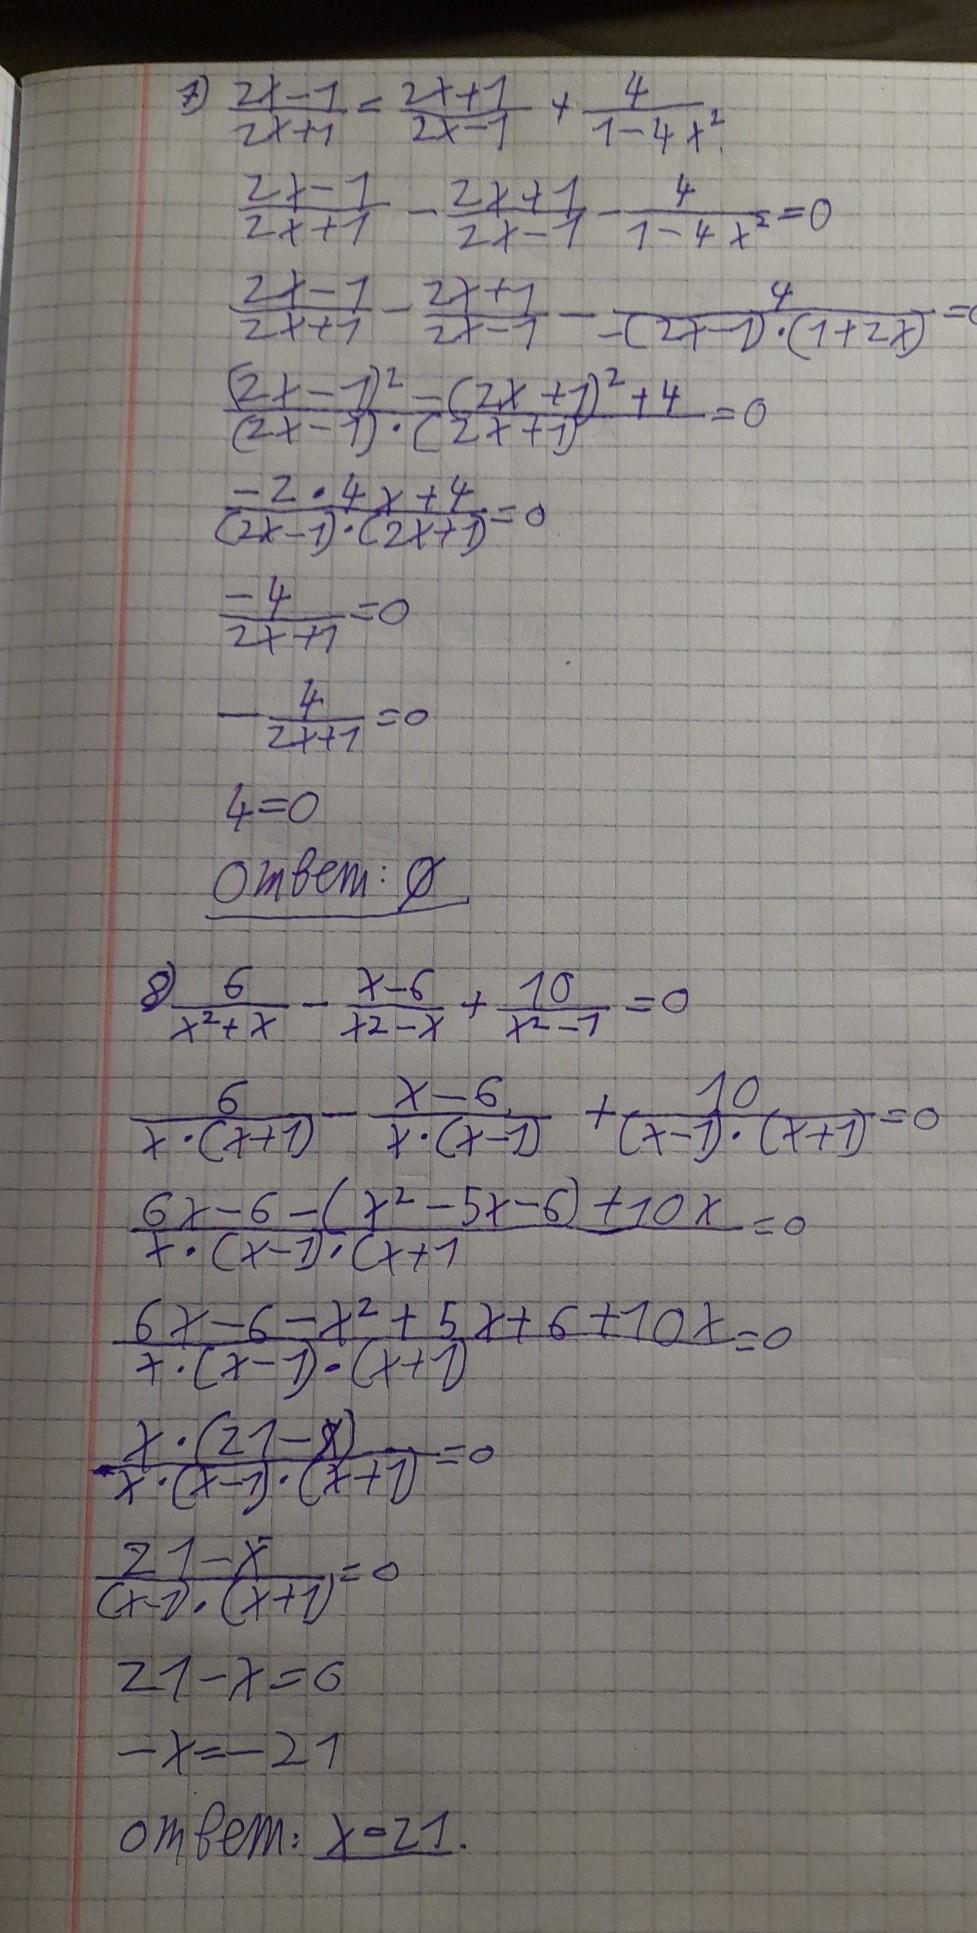 7) (2x-1)/(2x+1) = (2x+1)/(2x-1) + 4/(1-4x²)
(2x-1)/(2x+1) - (2x+1)/(2x-1) - 4/(1-4x²) = 0
(2x-1)/(2x+1) - (2x+1)/(2x-1) - 4/(-(2x-1)·(1+2x)) = 0
((2x-1)² - (2x+1)² + 4)/((2x-1)·(2x+1)) = 0
(-2·4x+4)/((2x-1)·(2x+1)) = 0
(-4)/(2x+1) = 0
- 4/(2x+1) = 0
4=0
Ответ: ∅
8) 6/(x²+x) - (x-6)/(x2-x) + 10/(x²-1) = 0
6/(x·(x+1)) - (x-6)/(x·(x-1)) + 10/((x-1)·(x+1)) = 0
(6x-6-(x²-5x-6)+10x)/(x·(x-1)·(x+1) = 0
(6x-6-x²+5x+6+10x)/(x·(x-1)·(x+1)) = 0
(x·(21-x))/(x·(x-1)·(x+1)) = 0
(21-x)/((x-1)·(x+1)) = 0
21-x=0
-x=-21
Ответ: x=21.